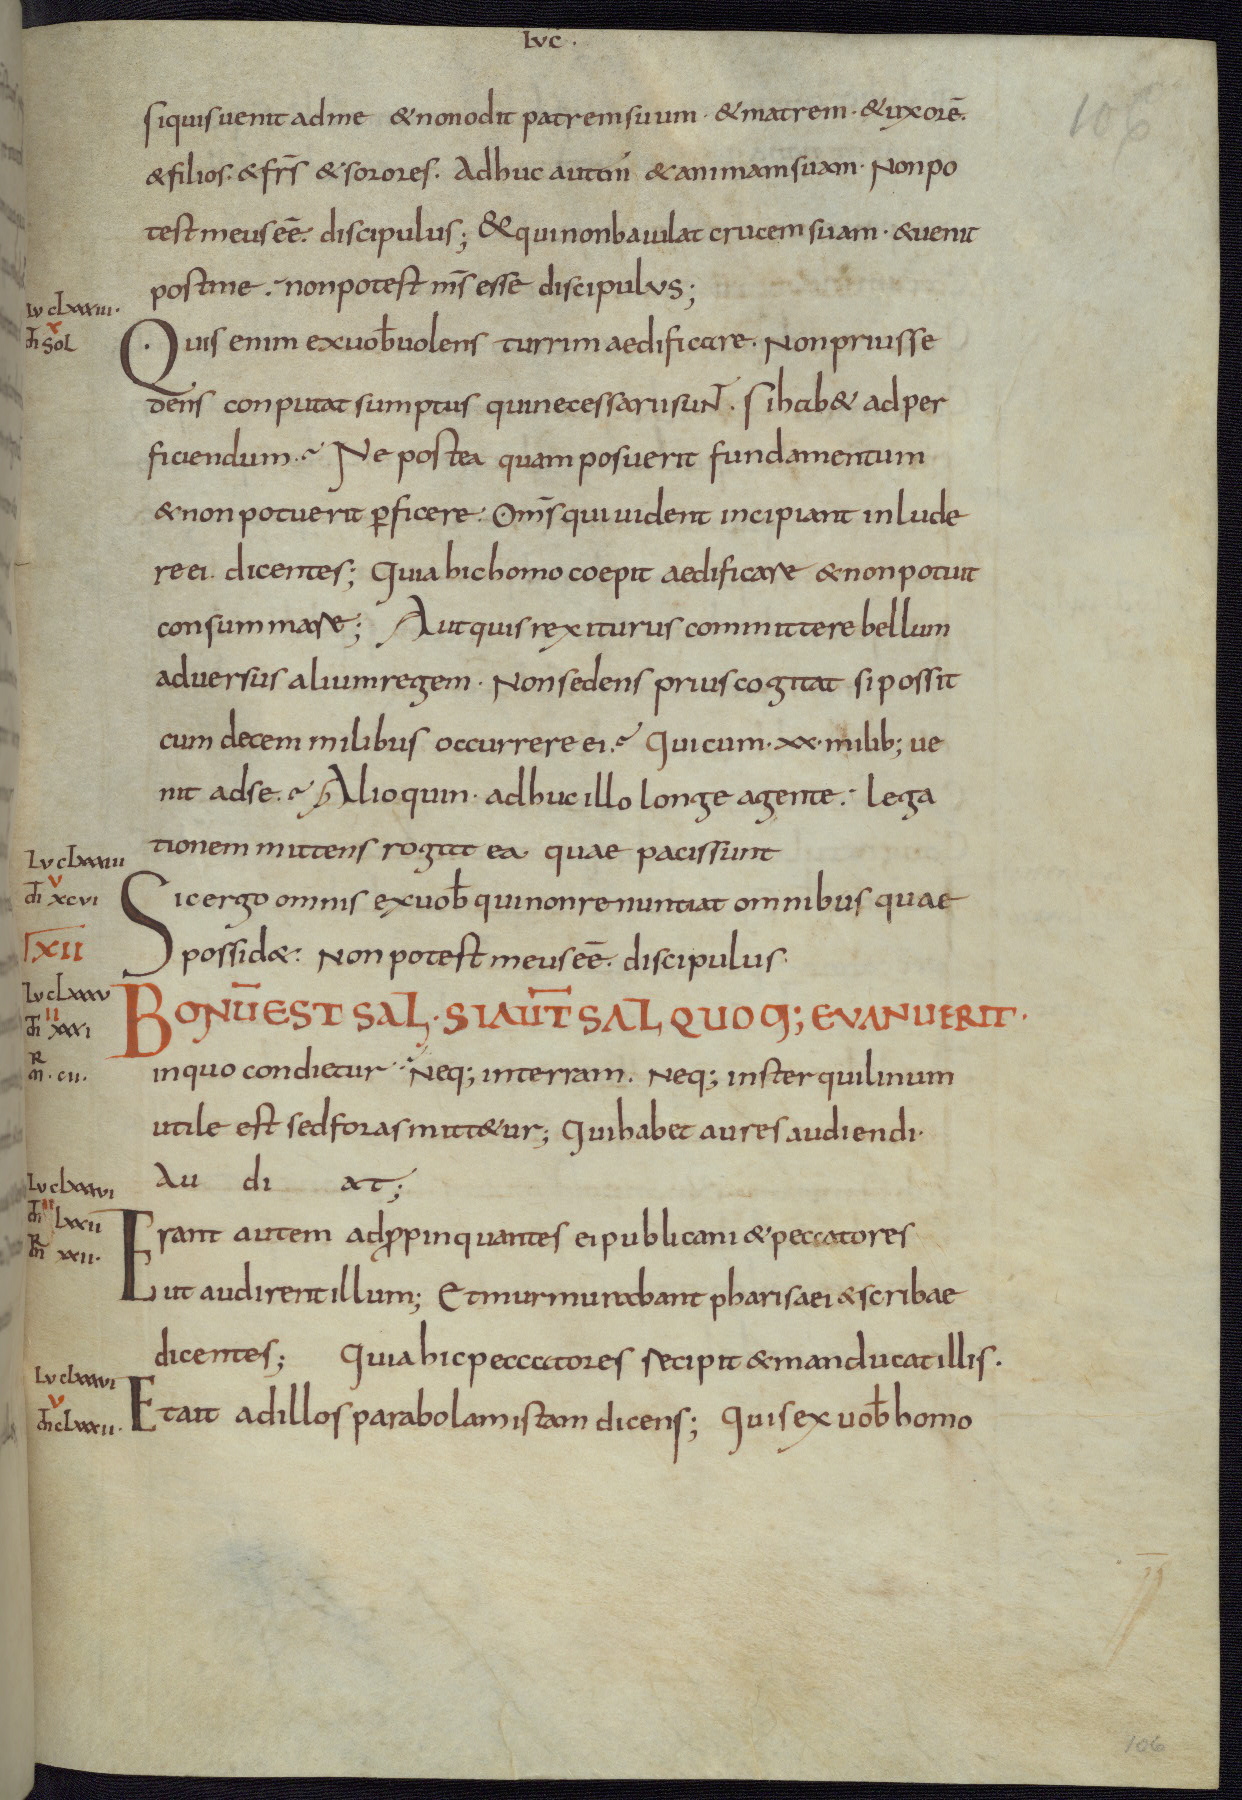 LVC ·
106
siquis uenit ad me & non odit patrem suum · & matrem · & uxorē.
& filios · & frs̄ & sorores. Adhuc autem & animam suam · Non po
test meus eē. discipulus; & qui non baiulat crucem suam · & uenit
post me. non potest ms̄ esse discipulus;
Lv clxxxiii·
x
Sol
Quis enim ex uob̄ uolens turrim aedificare. Non prius se
dens conputat sumptus qui necessarii sunt̄. Si hab& ad per
ficiendum. Ne postea quam posuerit fundamentum
& non potuerit ꝑficere. Oms̄ qui uident incipiant inlude
re ei. dicentes; Quia hic homo coepit aedificare & non potuit
consummare; Aut quis rex iturus committere bellum
aduersus alium regem · Non sedens prius cogitat si possit
cum decem milibus occurrere ei. Qui cum · xx · milib; ue
nit ad se. Alioquin · adhuc illo longe agente. lega
tionem mittens rogat ea quae pacis sunt
Lv clxxxiiii
v
m̄ xcvi
Sic ergo omnis ex uob̄ qui non renuntiat omnibus quae
possid&. Non potest meus eē. discipulus.
LXII
Lv clxxxv
II
m̄ xxxi
BONŪ EST SAL · SI AUT̄ SAL QUOQ; EVANUERIT ·
R
m · cii.
in quo condietur. Neq; in terram. Neq; in sterquilinum
utile est sed foras mitt&ur; Qui habet aures audiendi.
Au di at;
Lv clxxxvi
m̄ lxxii
R
m̄ xxii.
Erant autem adꝓpinquantes ei publicani & peccatores
ut audirent illum; Et murmurabant pharisaei & scribae
dicentes; Quia hic peccatores recipit & manducat illis.
Lv clxxxvi
v
m̄ clxxxii.
Et ait ad illos parabolam istam dicens; Quis ex uob̄ homo
106